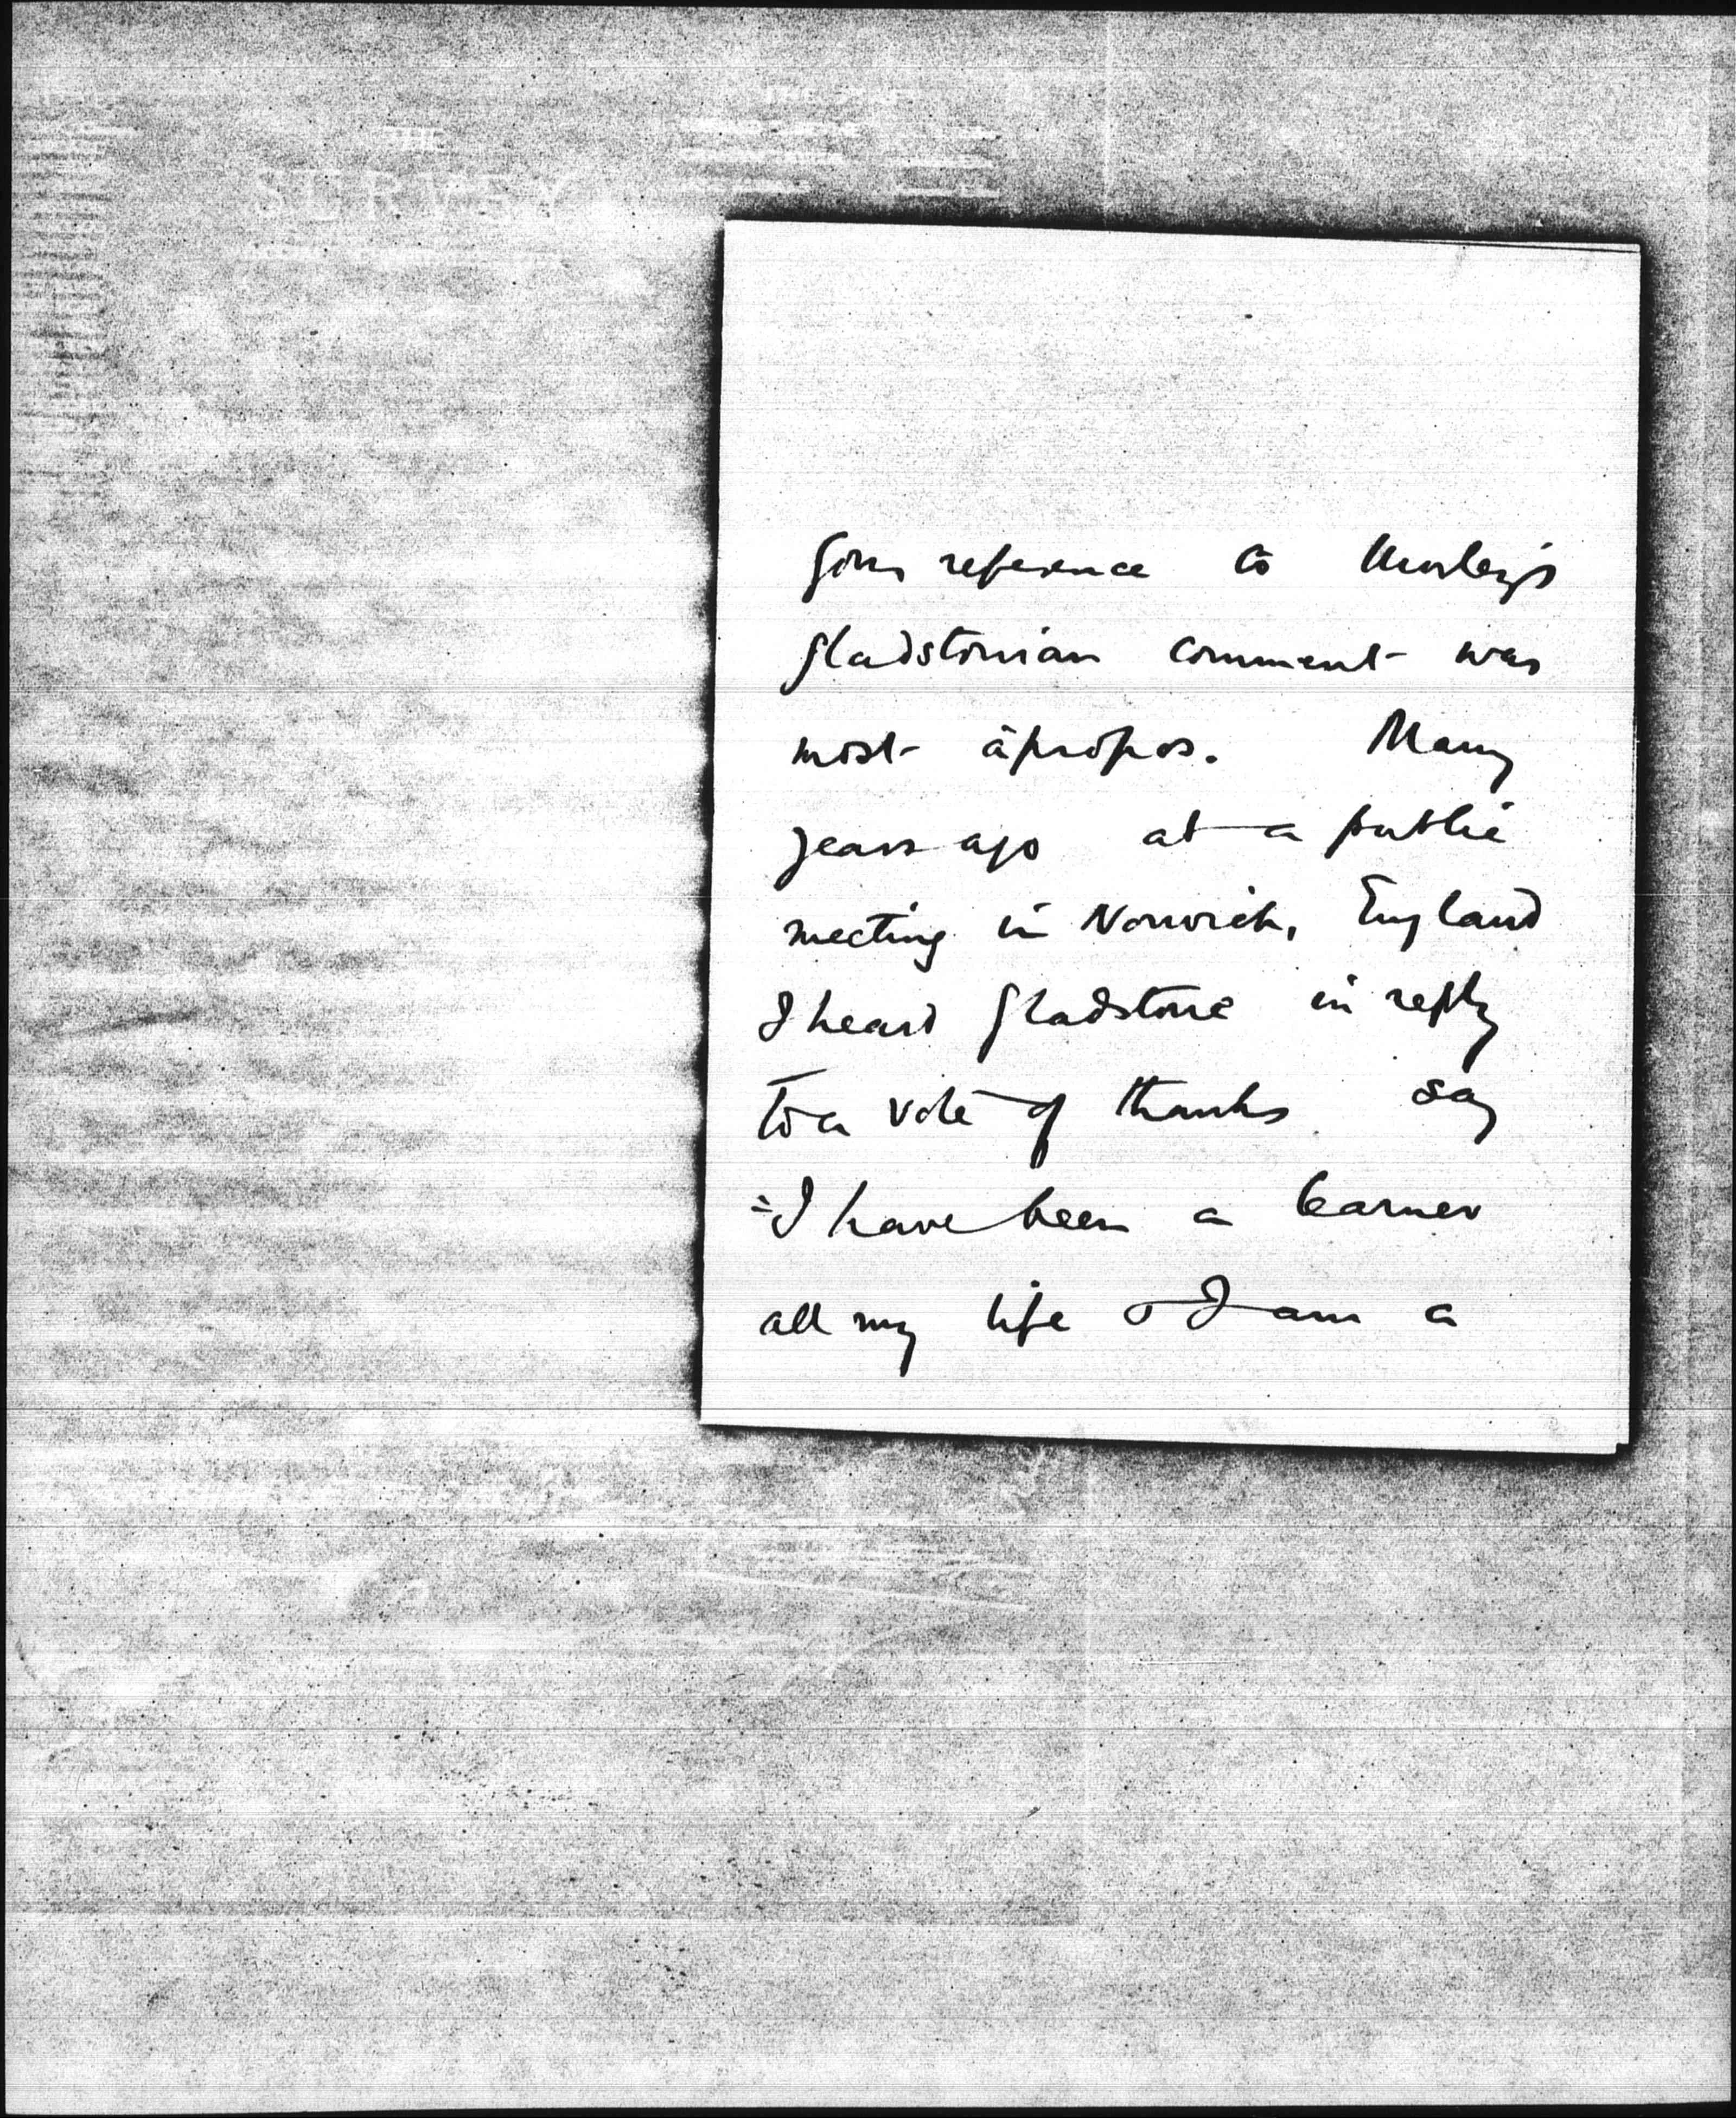 SURVEY
Your reference to Morley's
Gladstonian comment was
most àpropos. Many
years ago at a public
meeting in Norwich, England
I heard Gladstone in reply
to a vote of thanks say
"I have been a learner
all my life & I am a